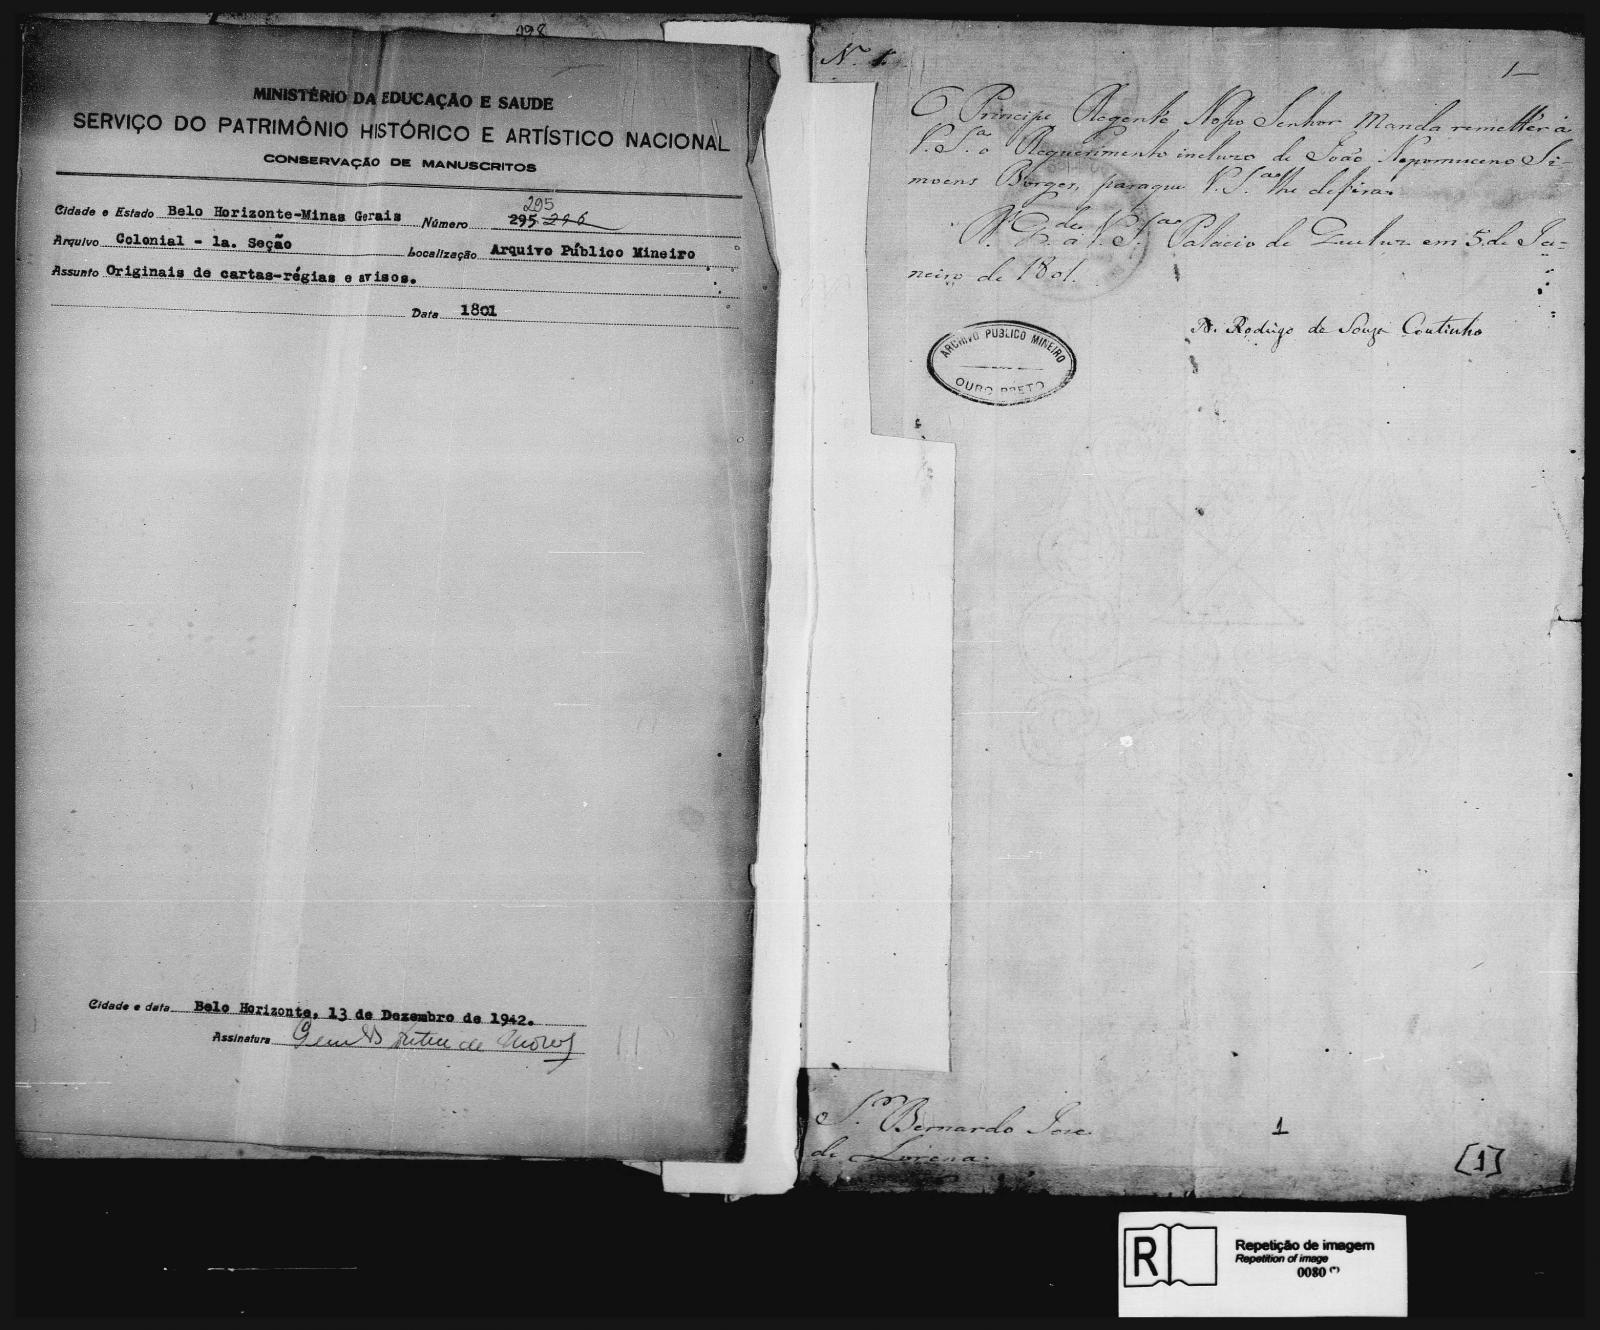 298
MINISTÉRIO DA EDUCAÇÃO E SAUDE
SERVIÇO DO PATRIMÔNIO HISTÓRICO E ARTÍSTICO NACIONAL
CONSERVAÇÃO DE MANUSCRITOS
295
Cidade e Estado Belo Horizonte-Minas Gerais Número 295 296
Arquivo Colonial - 1a. Seção Localização Arquivo Público Mineiro
Assunto Originais de cartas-régias e avisos.
Data 1801
Cidade e data Belo Horizonte, 13 de Dezembro de 1942.
Assinatura
N. 1.
1
O Principe Regente Nosso Senhor Manda remetter a
V. S.ª o Requerimento incluzo de João Nepomuceno Si-
moens Borges, paraque V. S.ª lhe defira.
D.s G.de a V. S.ª Palacio de Queluz em 5 de Ja-
neiro de 1801.
D. Rodrigo de Souza Coutinho
ARCHIVO PUBLICO MINEIRO
OURO PRETO
S.r Bernardo Joze
de Lorena.
1
[1]
R
Repetição de imagem
Repetition of image
0080 (*)